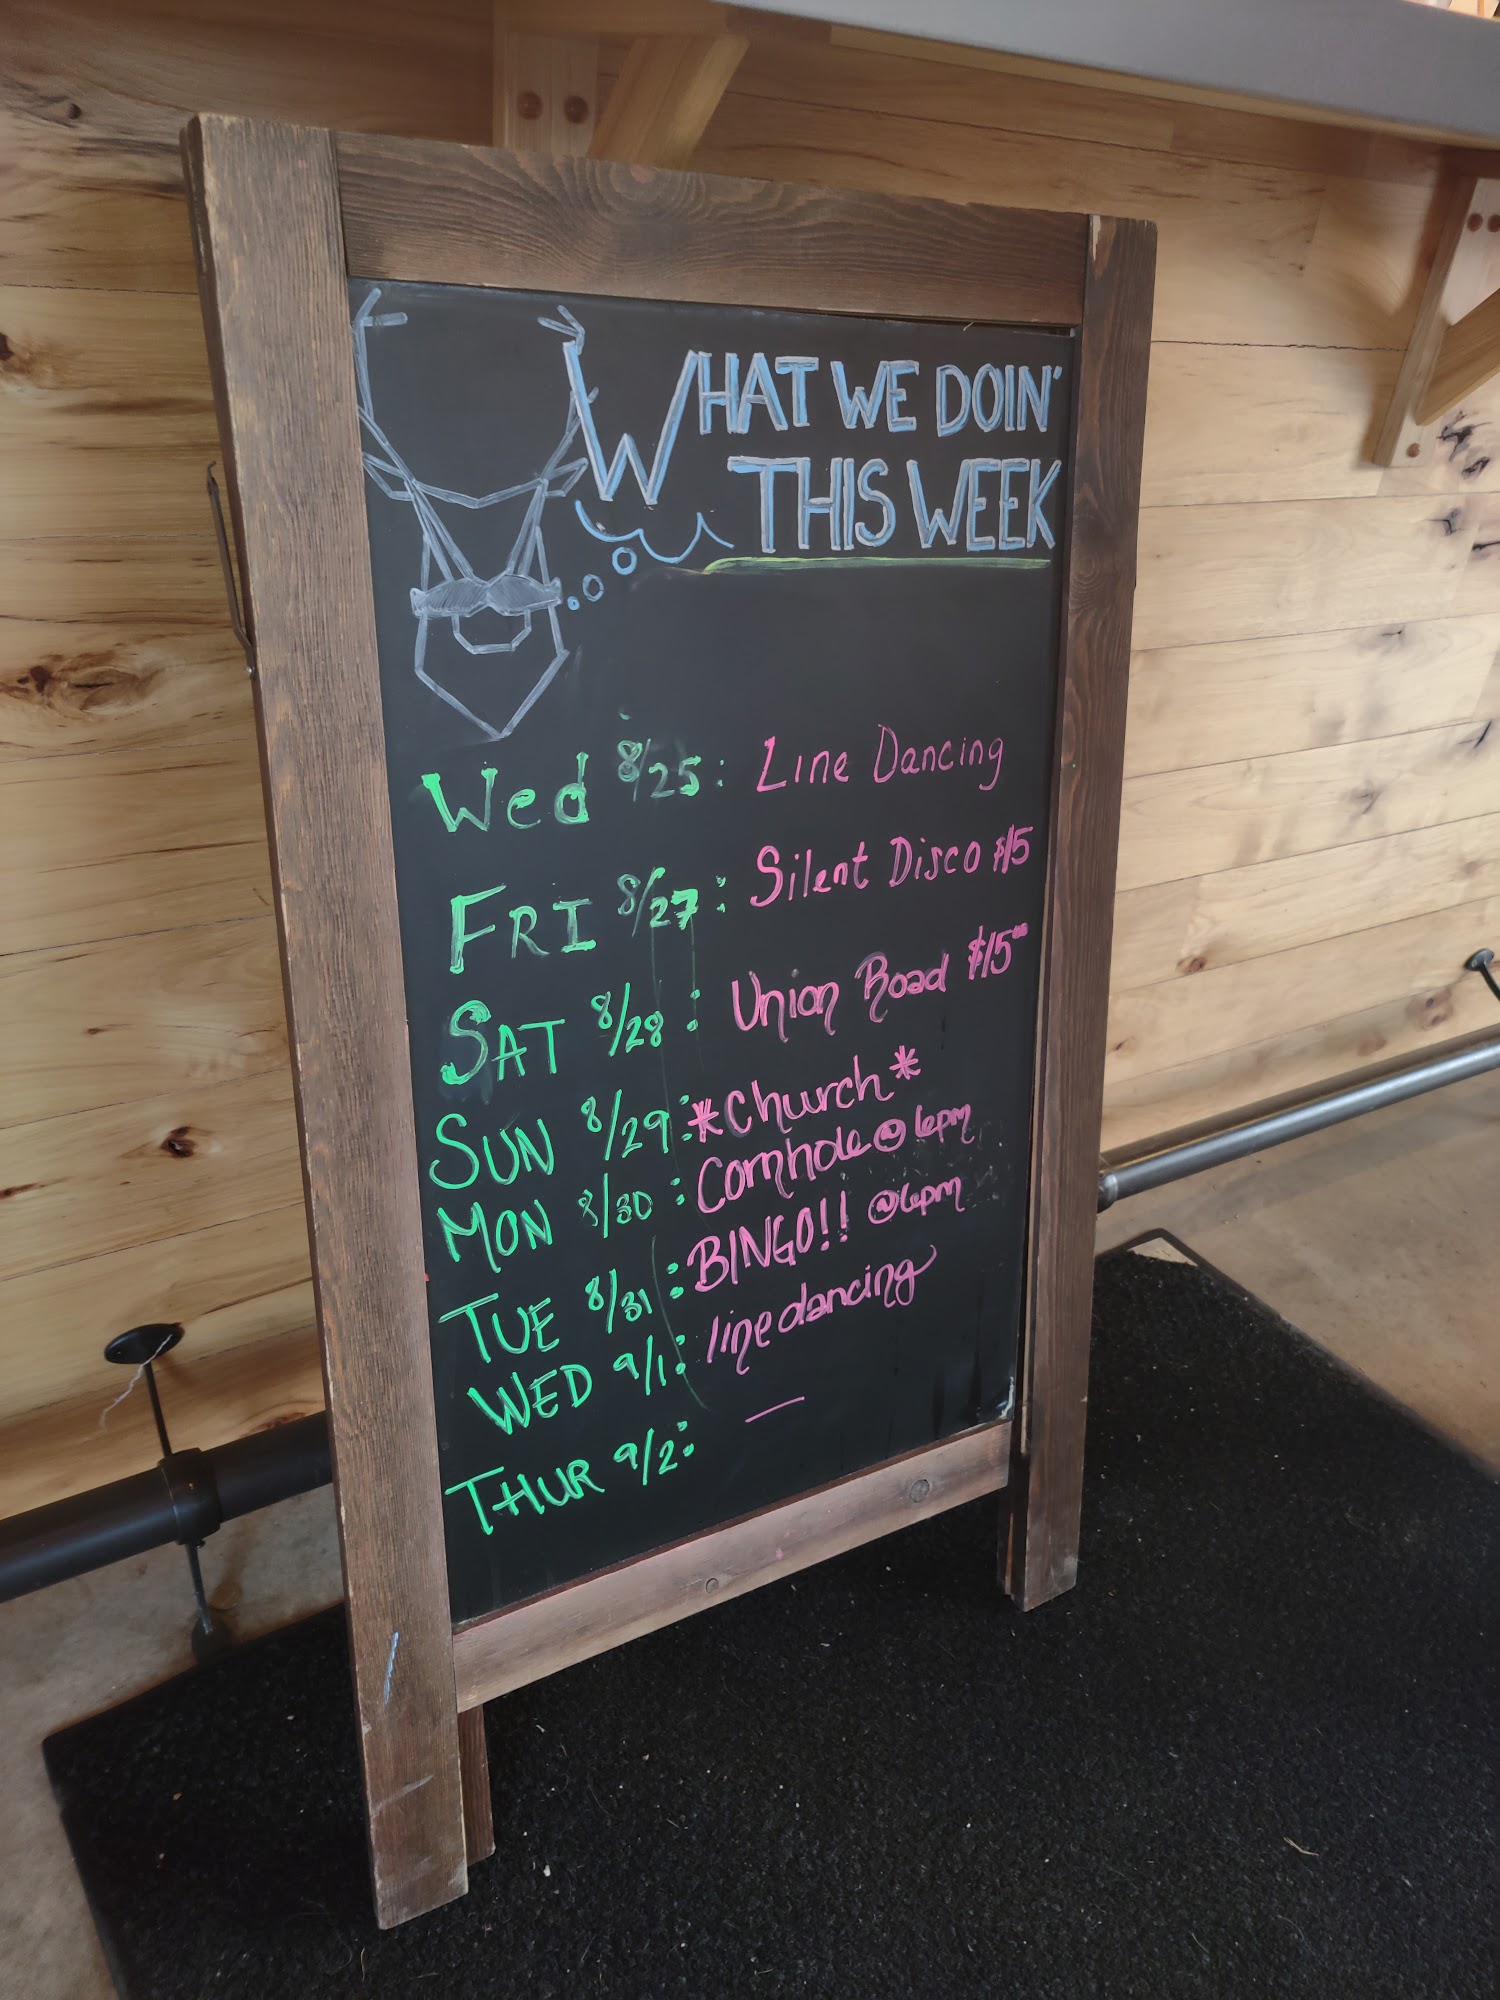 WHAT WE DOIN'
THIS WEEK
Wed 8/25: Line Dancing
FRI 8/27: Silent Disco $15
SAT 8/28: Union Road $15.00
SUN 8/29: *Church*
MON 8/30: Cornhole @ 6pm
TUE 8/31: BINGO!! @6pm
WED 9/1: line dancing
THUR 9/2: —